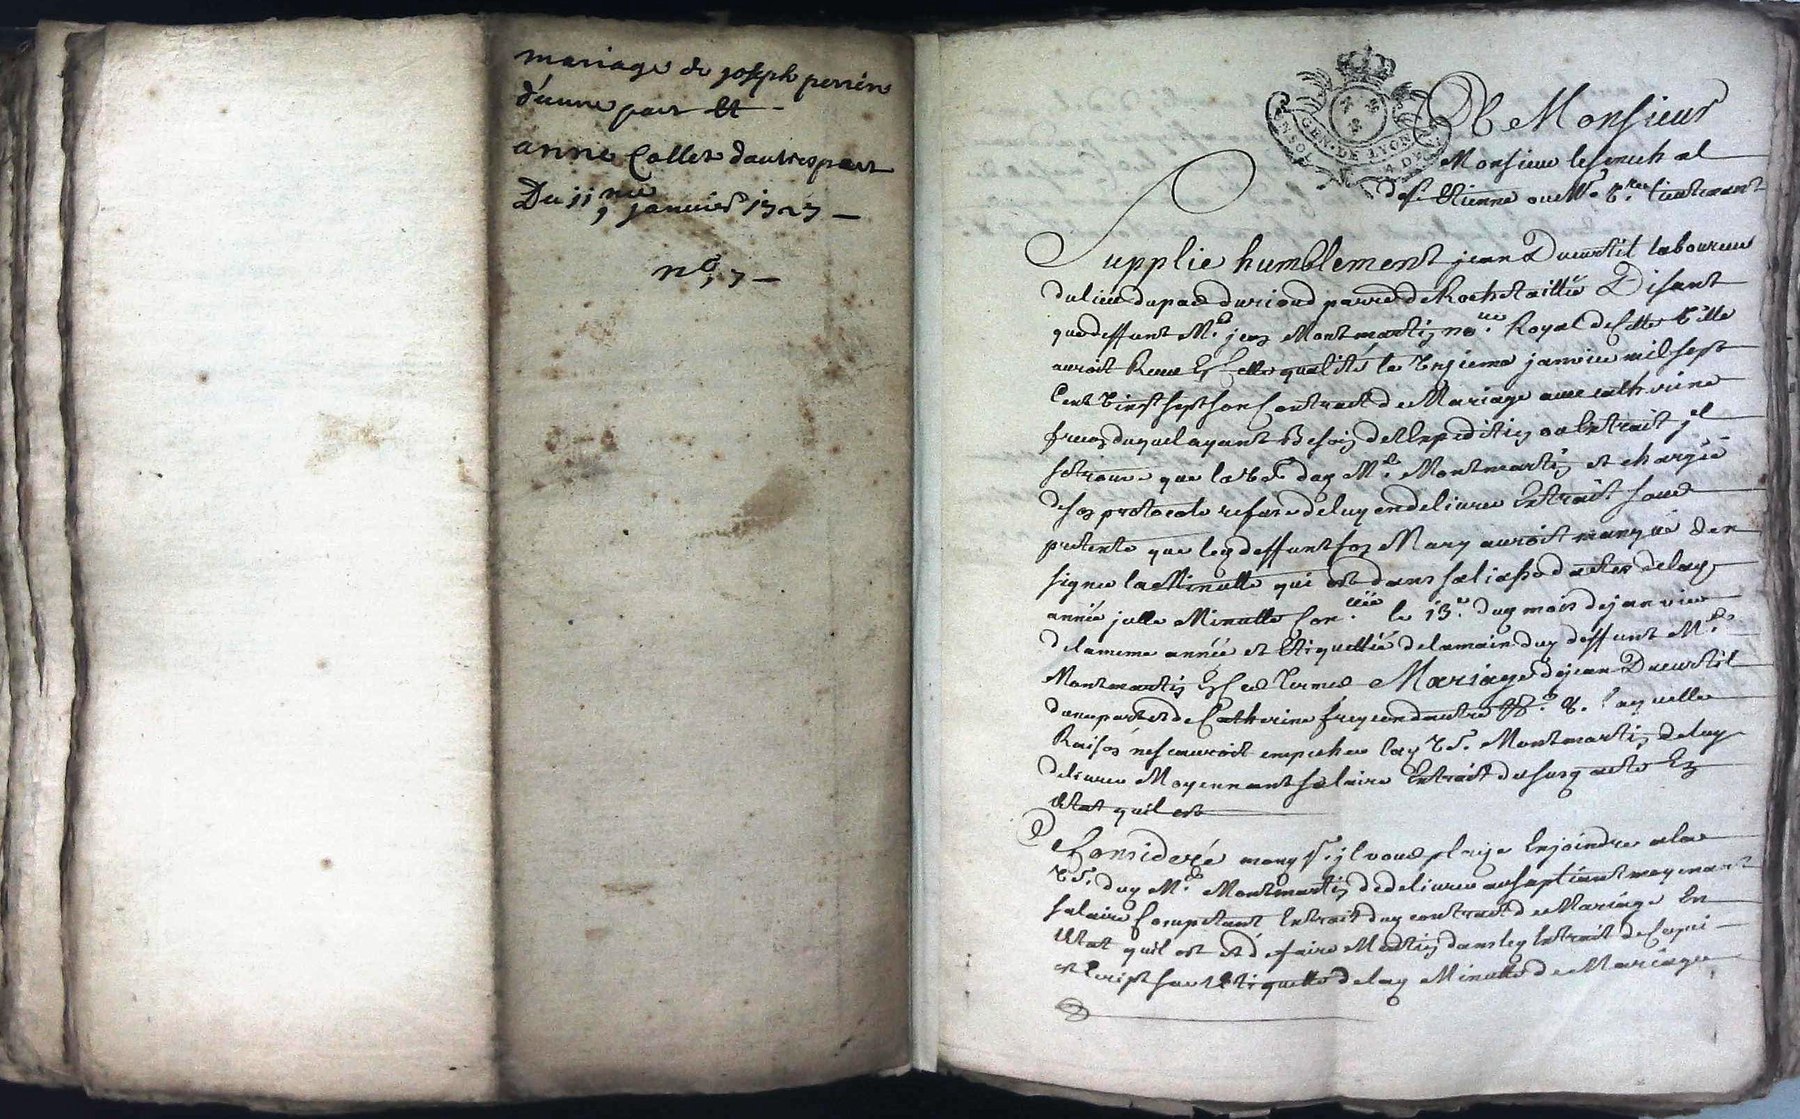 mariage de joseph perrin
d'une part et
anne Collet d'autre part
Du 11me janvier 1727
no 7
GEN. DE LYON
A Monsieur
Monsieur le senechal
de st Etienne ou Mr Lieutenant
Supplie humblement jean laboureur
du lieu du parre de Rochetaillée Disant
que deffunt Me jean Montmartin nore Royal de cette Ville
auroit Receu En cette qualité le janvier mil sept
Cent Vingt sept son Contract de Mariage avec catherine
duquel ayant Besoin de l'Expedition ou Extrait jl
se trouve que la ve dud Me Montmartin et chargée
de son protocole refuse de luy en delivrer Extrait sous
pretexte que led deffunt son Mary auroit manqué d'en
signer la Minutte qui est dans sa liasse d'actes de lad
année jcelle Minutte le 13e dud mois de janvier
de la meme année et Etiquettée de la main dud deffunt Me
Montmartin En ces Termes Mariage de jean
d'une part et de Catherine d'autre laquelle
Raison ne scauroit empecher lad Ve Montmartin de luy
delivrer Moyennant salaire Extrait dud acte En
Etat quil est
Consideré jl vous plaise Enjoindre a la
Ve dud Me Montmartin de delivrer au supliant moyenant
salaire Competant Extrait dud contract de Mariage En
Etat quil est et de faire Mention dans led Extrait de
Ecript sur l'Etiquette de lad Minutte de Mariage